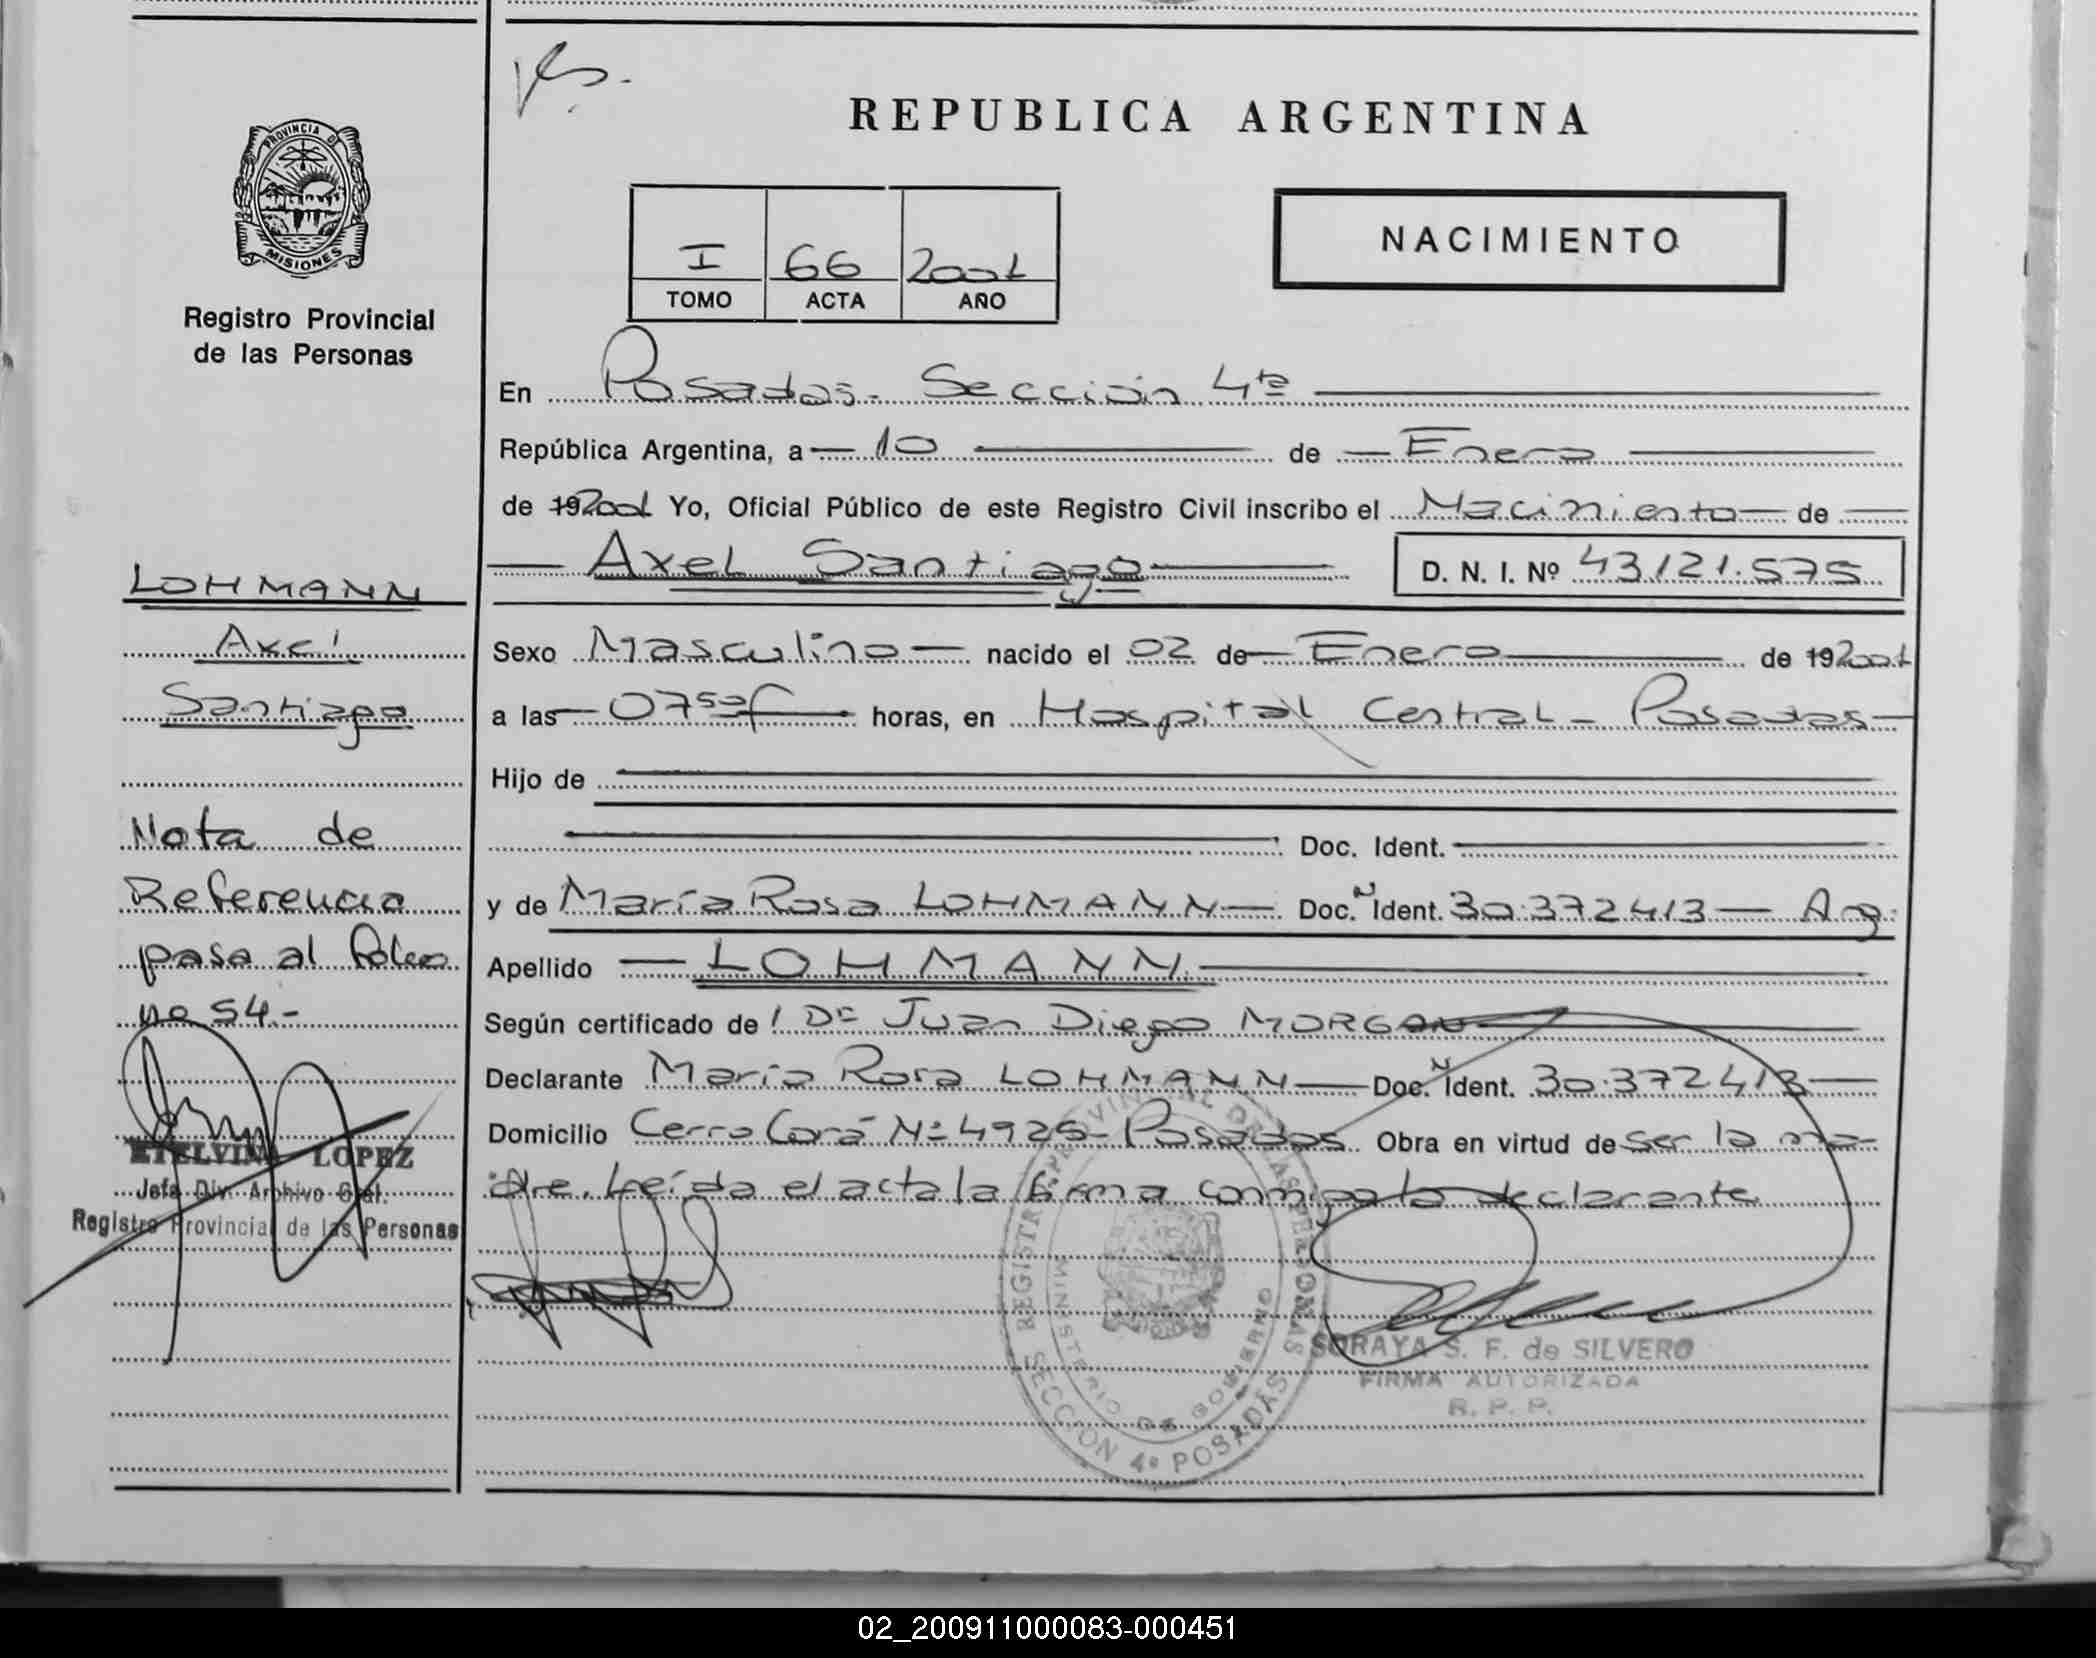 REPUBLICA ARGENTINA
PROVINCIA DE
MISIONES
Registro Provincial
de las Personas
I 66 2001
TOMO ACTA AÑO
NACIMIENTO
En Posadas - Sección 4ta
República Argentina, a 10 de Enero
de 192001 Yo, Oficial Público de este Registro Civil inscribo el Nacimiento de
Axel Santiago D. N. I. Nº 43.121.575
Sexo Masculino nacido el 02 de Enero de 192001
a las 0750 horas, en Hospital Central - Posadas
Hijo de
Doc. Ident.
y de María Rosa LOHMANN Doc. N Ident. 30.372413 - Arg.
Apellido LOHMANN
Según certificado de Dr Juan Diego MORGAN
Declarante María Rosa LOHMANN Doc. N Ident. 30.372413
Domicilio Cerro Corá Nº 4925 - Posadas Obra en virtud de ser la ma-
dre. Leída el acta la firma conmigo la declarante
LOHMANN
Axel
Santiago
Nota de
Referencia
pasa al Folio
nº 54.-
ETELVINA LOPEZ
Jefa Div. Archivo Gral.
Registro Provincial de las Personas
REGISTRO PROVINCIAL DE LAS PERSONAS
MINISTERIO DE GOBIERNO
SECCION 4ª POSADAS
SORAYA S. F. de SILVERO
FIRMA AUTORIZADA
R. P. P.
02_200911000083-000451